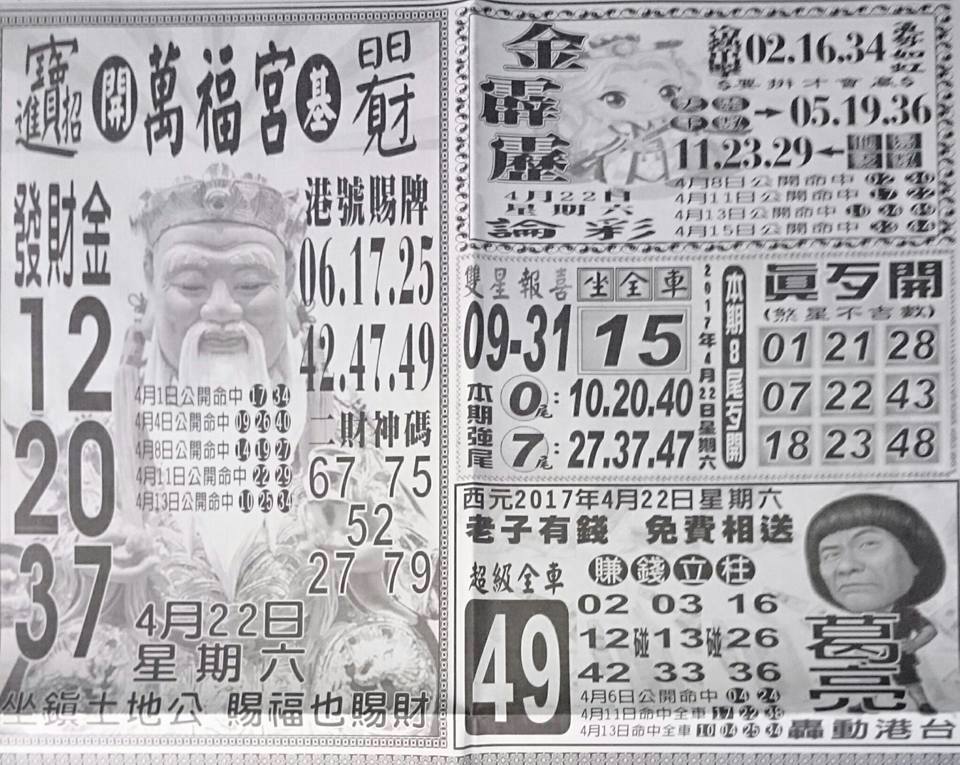 招財進寶
開基
萬福宮
發財金
12
20
37
港號賜牌
06.17.25
42.47.49
二財神碼
67 75
52
27 79
4月1日公開命中 17 34
4月4日公開命中 09 26 40
4月8日公開命中 14 19 27
4月11日公開命中 22 29
4月13日公開命中 10 25 34
4月22日
星期六
坐鎮土地公 賜福也賜財
金霹靂
4月22日
星期六
論彩
02.16.34
要拚才會贏
05.19.36
11.23.29
4月8日公開命中
4月11日公開命中
4月13日公開命中
4月15日公開命中
雙星報喜 坐全車
09-31 15
本期強尾
0尾: 10.20.40
7尾: 27.37.47
2017年4月22日星期六
本期8尾歹開
眞歹開
(煞星不吉數)
01 21 28
07 22 43
18 23 48
西元2017年4月22日星期六
老子有錢 免費相送
超級全車
49
賺錢立柱
02 03 16
12碰13碰26
42 33 36
4月6日公開命中 04 24
4月11日命中全車 17 22 38
4月13日命中全車 10 04 25 34
葛亮
轟動港台